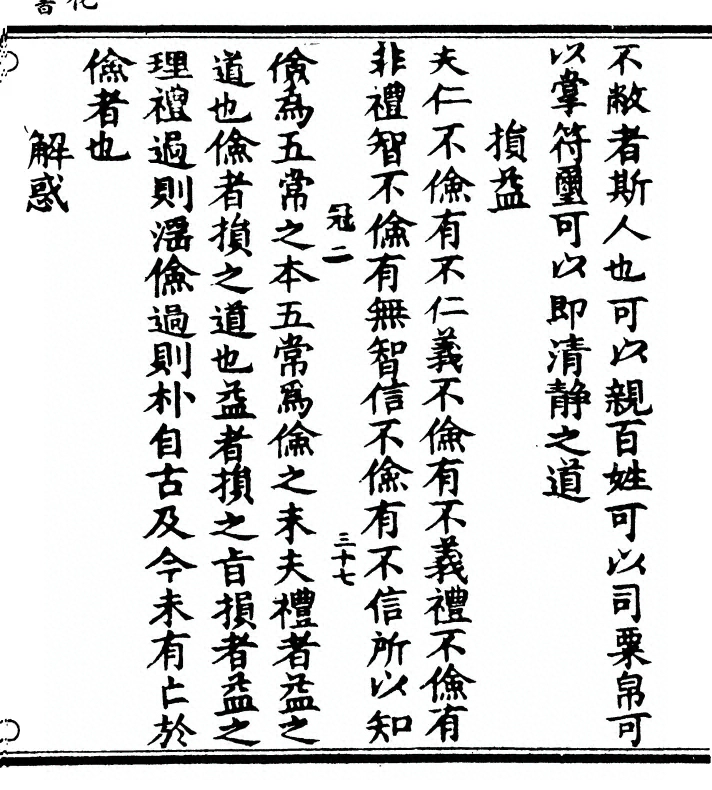 化書
不敝者斯人也可以親百姓可以司粟帛可
以掌符璽可以即清静之道
損益
夫仁不儉有不仁義不儉有不義禮不儉有
非禮智不儉有無智信不儉有不信所以知
冠二
三十七
儉為五常之本五常爲儉之末夫禮者益之
道也儉者損之道也益者損之旨損者益之
理禮過則淫儉過則朴自古及今未有亡於
儉者也
解惑